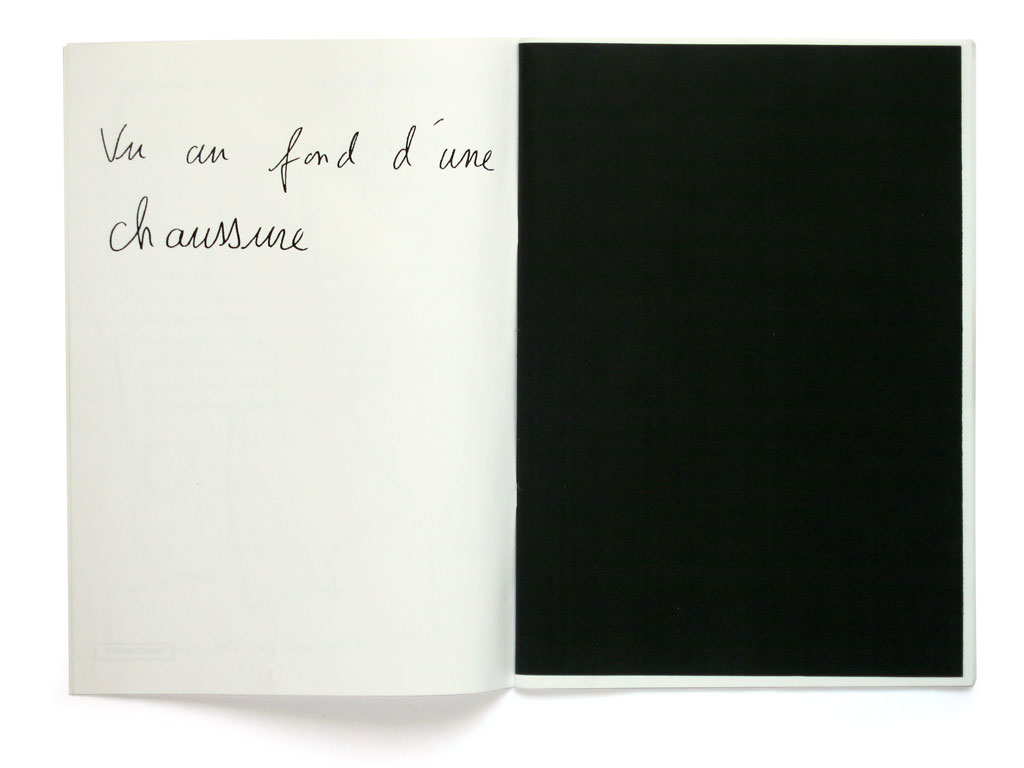 Vu au fond d'une
chaussure